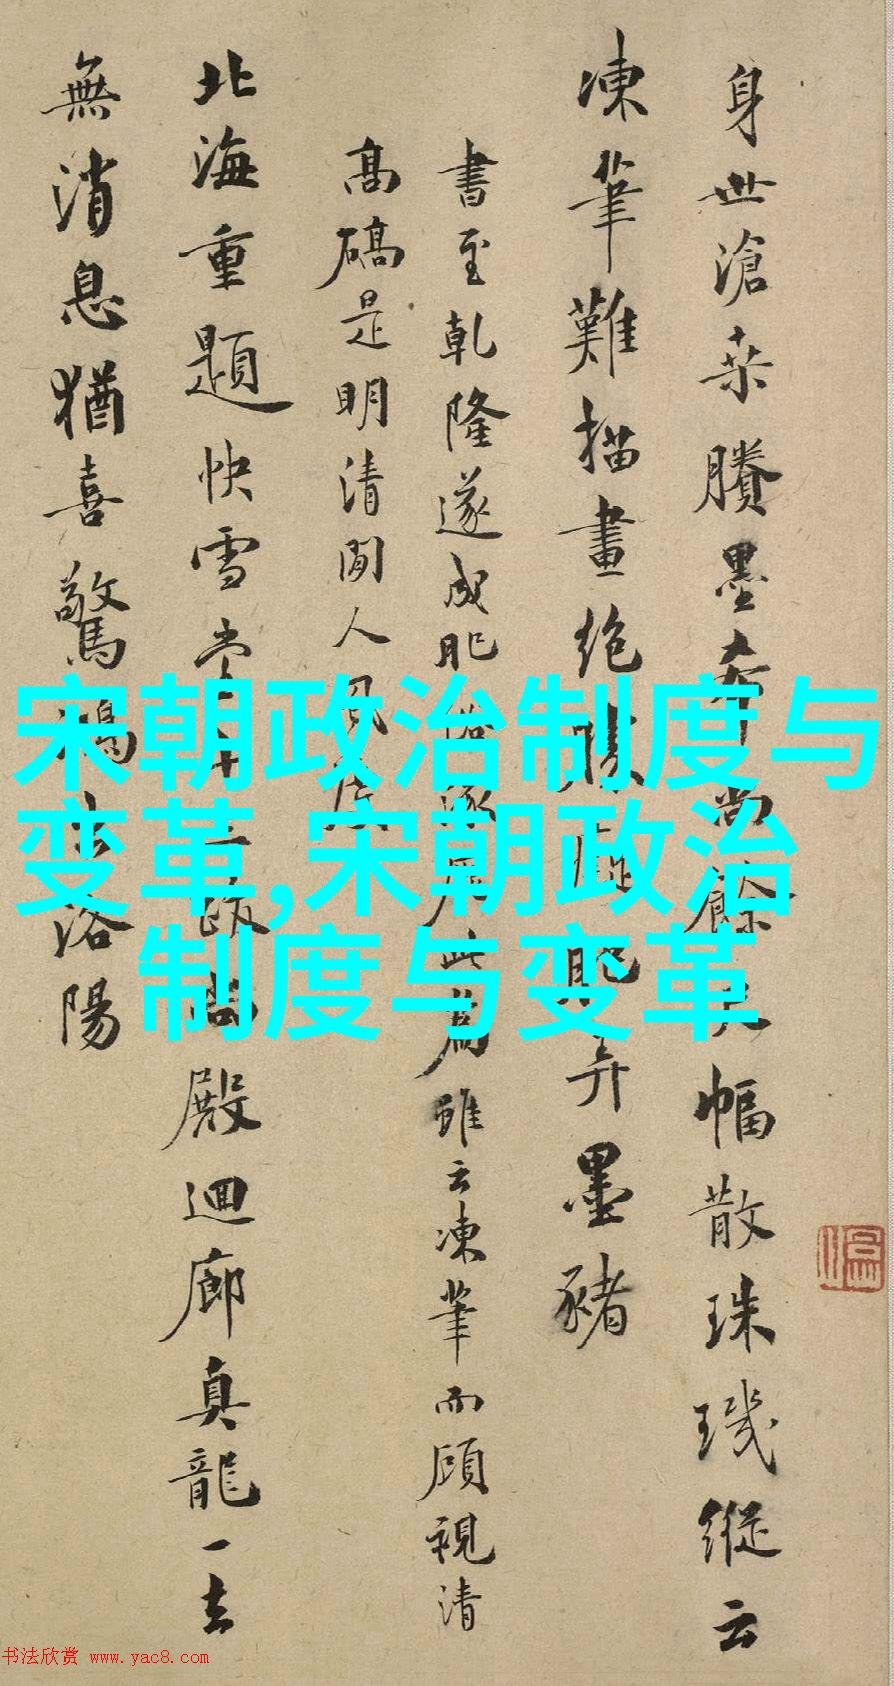 身世滄桑賸墨
大幅散珠璣縱云
凍筆難描畫絶勝
肥弄墨豬
書至乾隆遂成肥俗
此爲雖云凍筆而頋視清
高碻是明清間人風度
北海重題快雪堂
殿迴廊真龍一去
無消息猶喜驚鴻
洛陽
宋朝政治制度与
变革,宋朝政治
制度与变革
书法欣赏 www.yac8.com